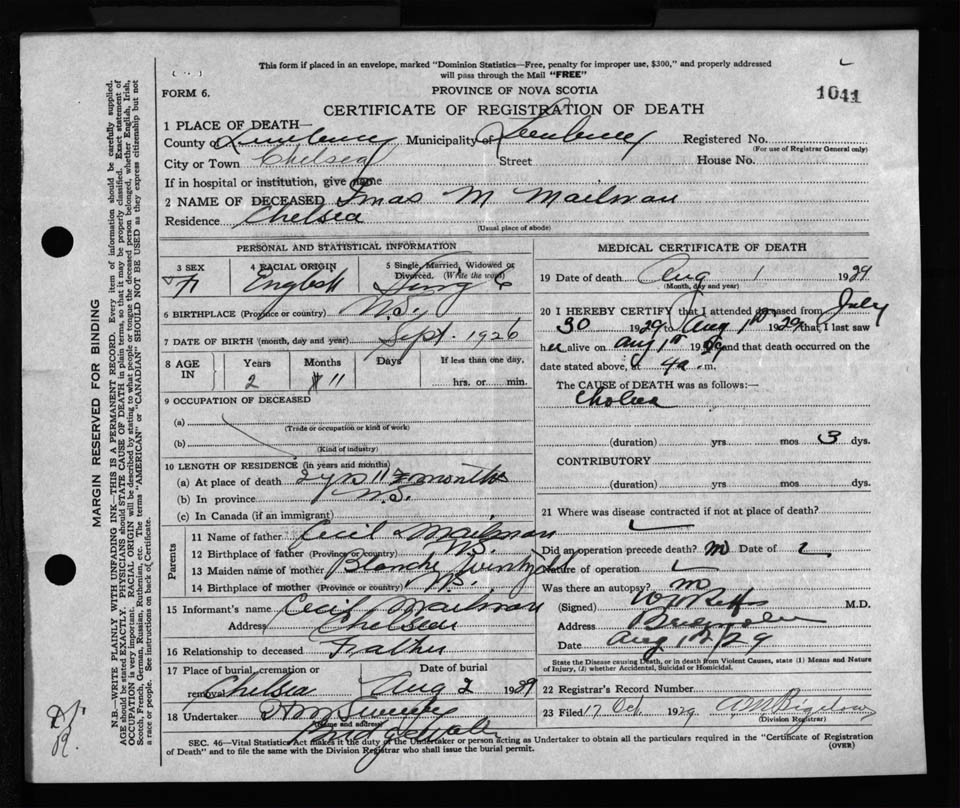 This form if placed in an envelope, marked "Dominion Statistics—Free, penalty for improper use, $300," and properly addressed
will pass through the Mail "FREE"
FORM 6.
PROVINCE OF NOVA SCOTIA
1041
CERTIFICATE OF REGISTRATION OF DEATH
1 PLACE OF DEATH—
County of Lunenburg Municipality of Lunenburg Registered No.
(For use of Registrar General only)
City or Town Chelsea Street House No.
If in hospital or institution, give name
2 NAME OF DECEASED M Mailman
Residence Chelsea
(Usual place of abode)
PERSONAL AND STATISTICAL INFORMATION
3 SEX 4 RACIAL ORIGIN 5 Single, Married, Widowed or Divorced. (Write the word)
English Single
6 BIRTHPLACE (Province or country) N.S.
7 DATE OF BIRTH (month, day and year) Sept. 1926
8 AGE IN Years Months Days If less than one day,
2 11 hrs. or min.
9 OCCUPATION OF DECEASED
(a)
(Trade or occupation or kind of work)
(b)
(Kind of industry)
10 LENGTH OF RESIDENCE (in years and months)
(a) At place of death 2 yrs 11 months
(b) In province N.S.
(c) In Canada (if an immigrant)
Parents
11 Name of father Cecil Mailman
12 Birthplace of father (Province or country) N.S.
13 Maiden name of mother Blanche
14 Birthplace of mother (Province or country) N.S.
15 Informant's name Cecil Mailman
Address Chelsea
16 Relationship to deceased Father
17 Place of burial, cremation or removal Chelsea Date of burial Aug 2 1929
18 Undertaker
(Name and address)
Bridgewater
MEDICAL CERTIFICATE OF DEATH
19 Date of death Aug 1 1929
(Month, day and year)
20 I HEREBY CERTIFY that I attended deceased from July
30 1929 to Aug 1st 1929 that I last saw
her alive on Aug 1st 1929 and that death occurred on
date stated above, at 4 a. m.
The CAUSE of DEATH was as follows:—
(duration) yrs mos 3 dys.
CONTRIBUTORY
(duration) yrs mos dys.
21 Where was disease contracted if not at place of death?
Did an operation precede death? no Date of
Nature of operation
Was there an autopsy? no
(Signed) M.D.
Address
Date Aug 12/29
State the Disease causing Death, or in death from Violent Causes, state (1) Means and Nature
of Injury, (2) whether Accidental, Suicidal or Homicidal.
22 Registrar's Record Number
23 Filed 17 Oct 1929
(Division Registrar)
SEC. 46—Vital Statistics Act makes it the duty of the Undertaker or person acting as Undertaker to obtain all the particulars required in the "Certificate of Registration
of Death" and to file the same with the Division Registrar who shall issue the burial permit.
(OVER)
MARGIN RESERVED FOR BINDING
N.B.—WRITE PLAINLY WITH UNFADING INK—THIS IS A PERMANENT RECORD. Every item of information should be carefully supplied.
AGE should be stated EXACTLY. PHYSICIANS should STATE CAUSE OF DEATH in plain terms, so that it may be properly classified. Exact statement of
OCCUPATION is very important. RACIAL ORIGIN will be described by stating to what people or tongue the deceased person belonged, whether English, Irish,
Scotch, French, German, Russian, Ruthenian, etc. The terms "AMERICAN" or "CANADIAN" SHOULD NOT BE USED as they express citizenship but not
a race or people. See instructions on back of Certificate.